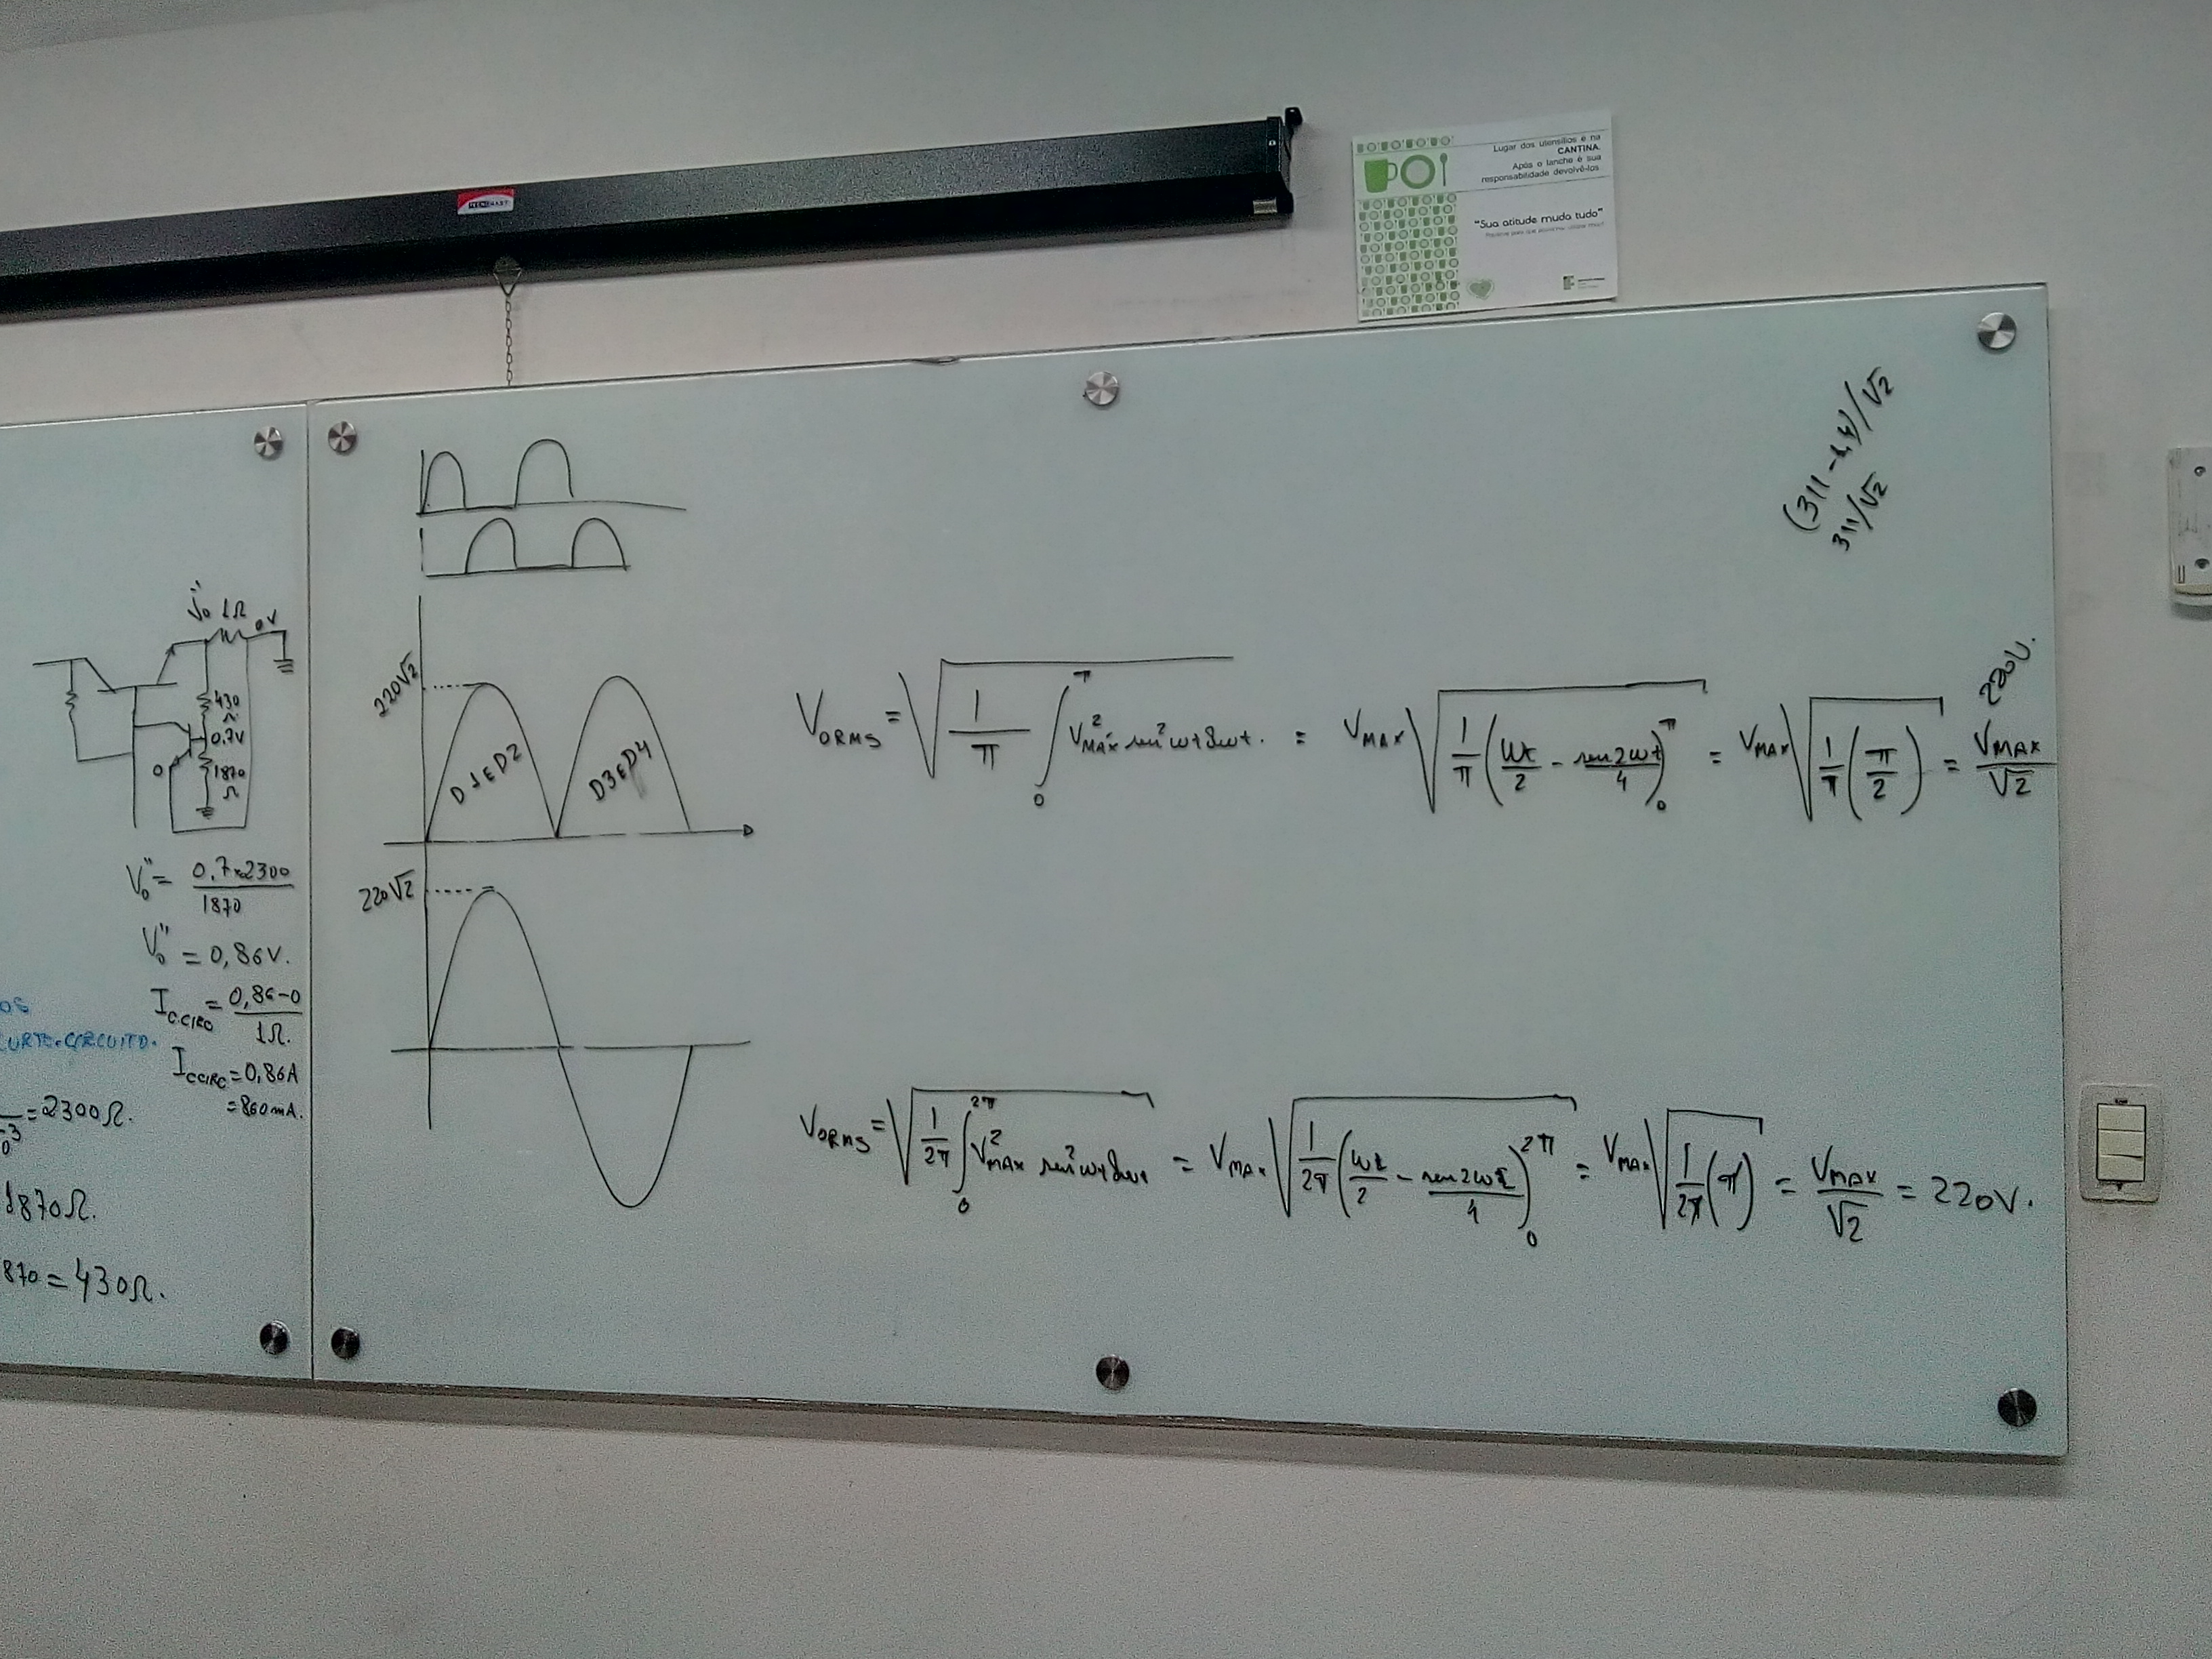 Lugar dos utensílios é na
CANTINA.
Após o lanche é sua
responsabilidade devolvê-los
"Sua atitude muda tudo"
(311 - 1,4)/√2
311/√2
1Ω
0V
430
Ω
0.7V
0
1870
Ω
V₀" = 0,7×2300 / 1870
V₀" = 0,86V.
I_CCIRC = 0,86-0 / 1Ω.
I_CCIRC = 0,86A
= 860mA.
OS
CURTO-CIRCUITO.
= 2300Ω.
1870Ω.
870 = 430Ω.
220√2
D1 e D2
D3 e D4
220√2
V_ORMS = √(1/π ∫₀^π V²_MAX sen²ωt δωt. = V_MAX √(1/π (ωt/2 - sen2ωt/4)₀^π = V_MAX √(1/π (π/2) = V_MAX/√2
220V.
V_ORMS = √(1/2π ∫₀^2π V²_MAX sen²ωt δωt = V_MAX √(1/2π (ωt/2 - sen2ωt/4)₀^2π = V_MAX √(1/2π (π) = V_MAX/√2 = 220V.